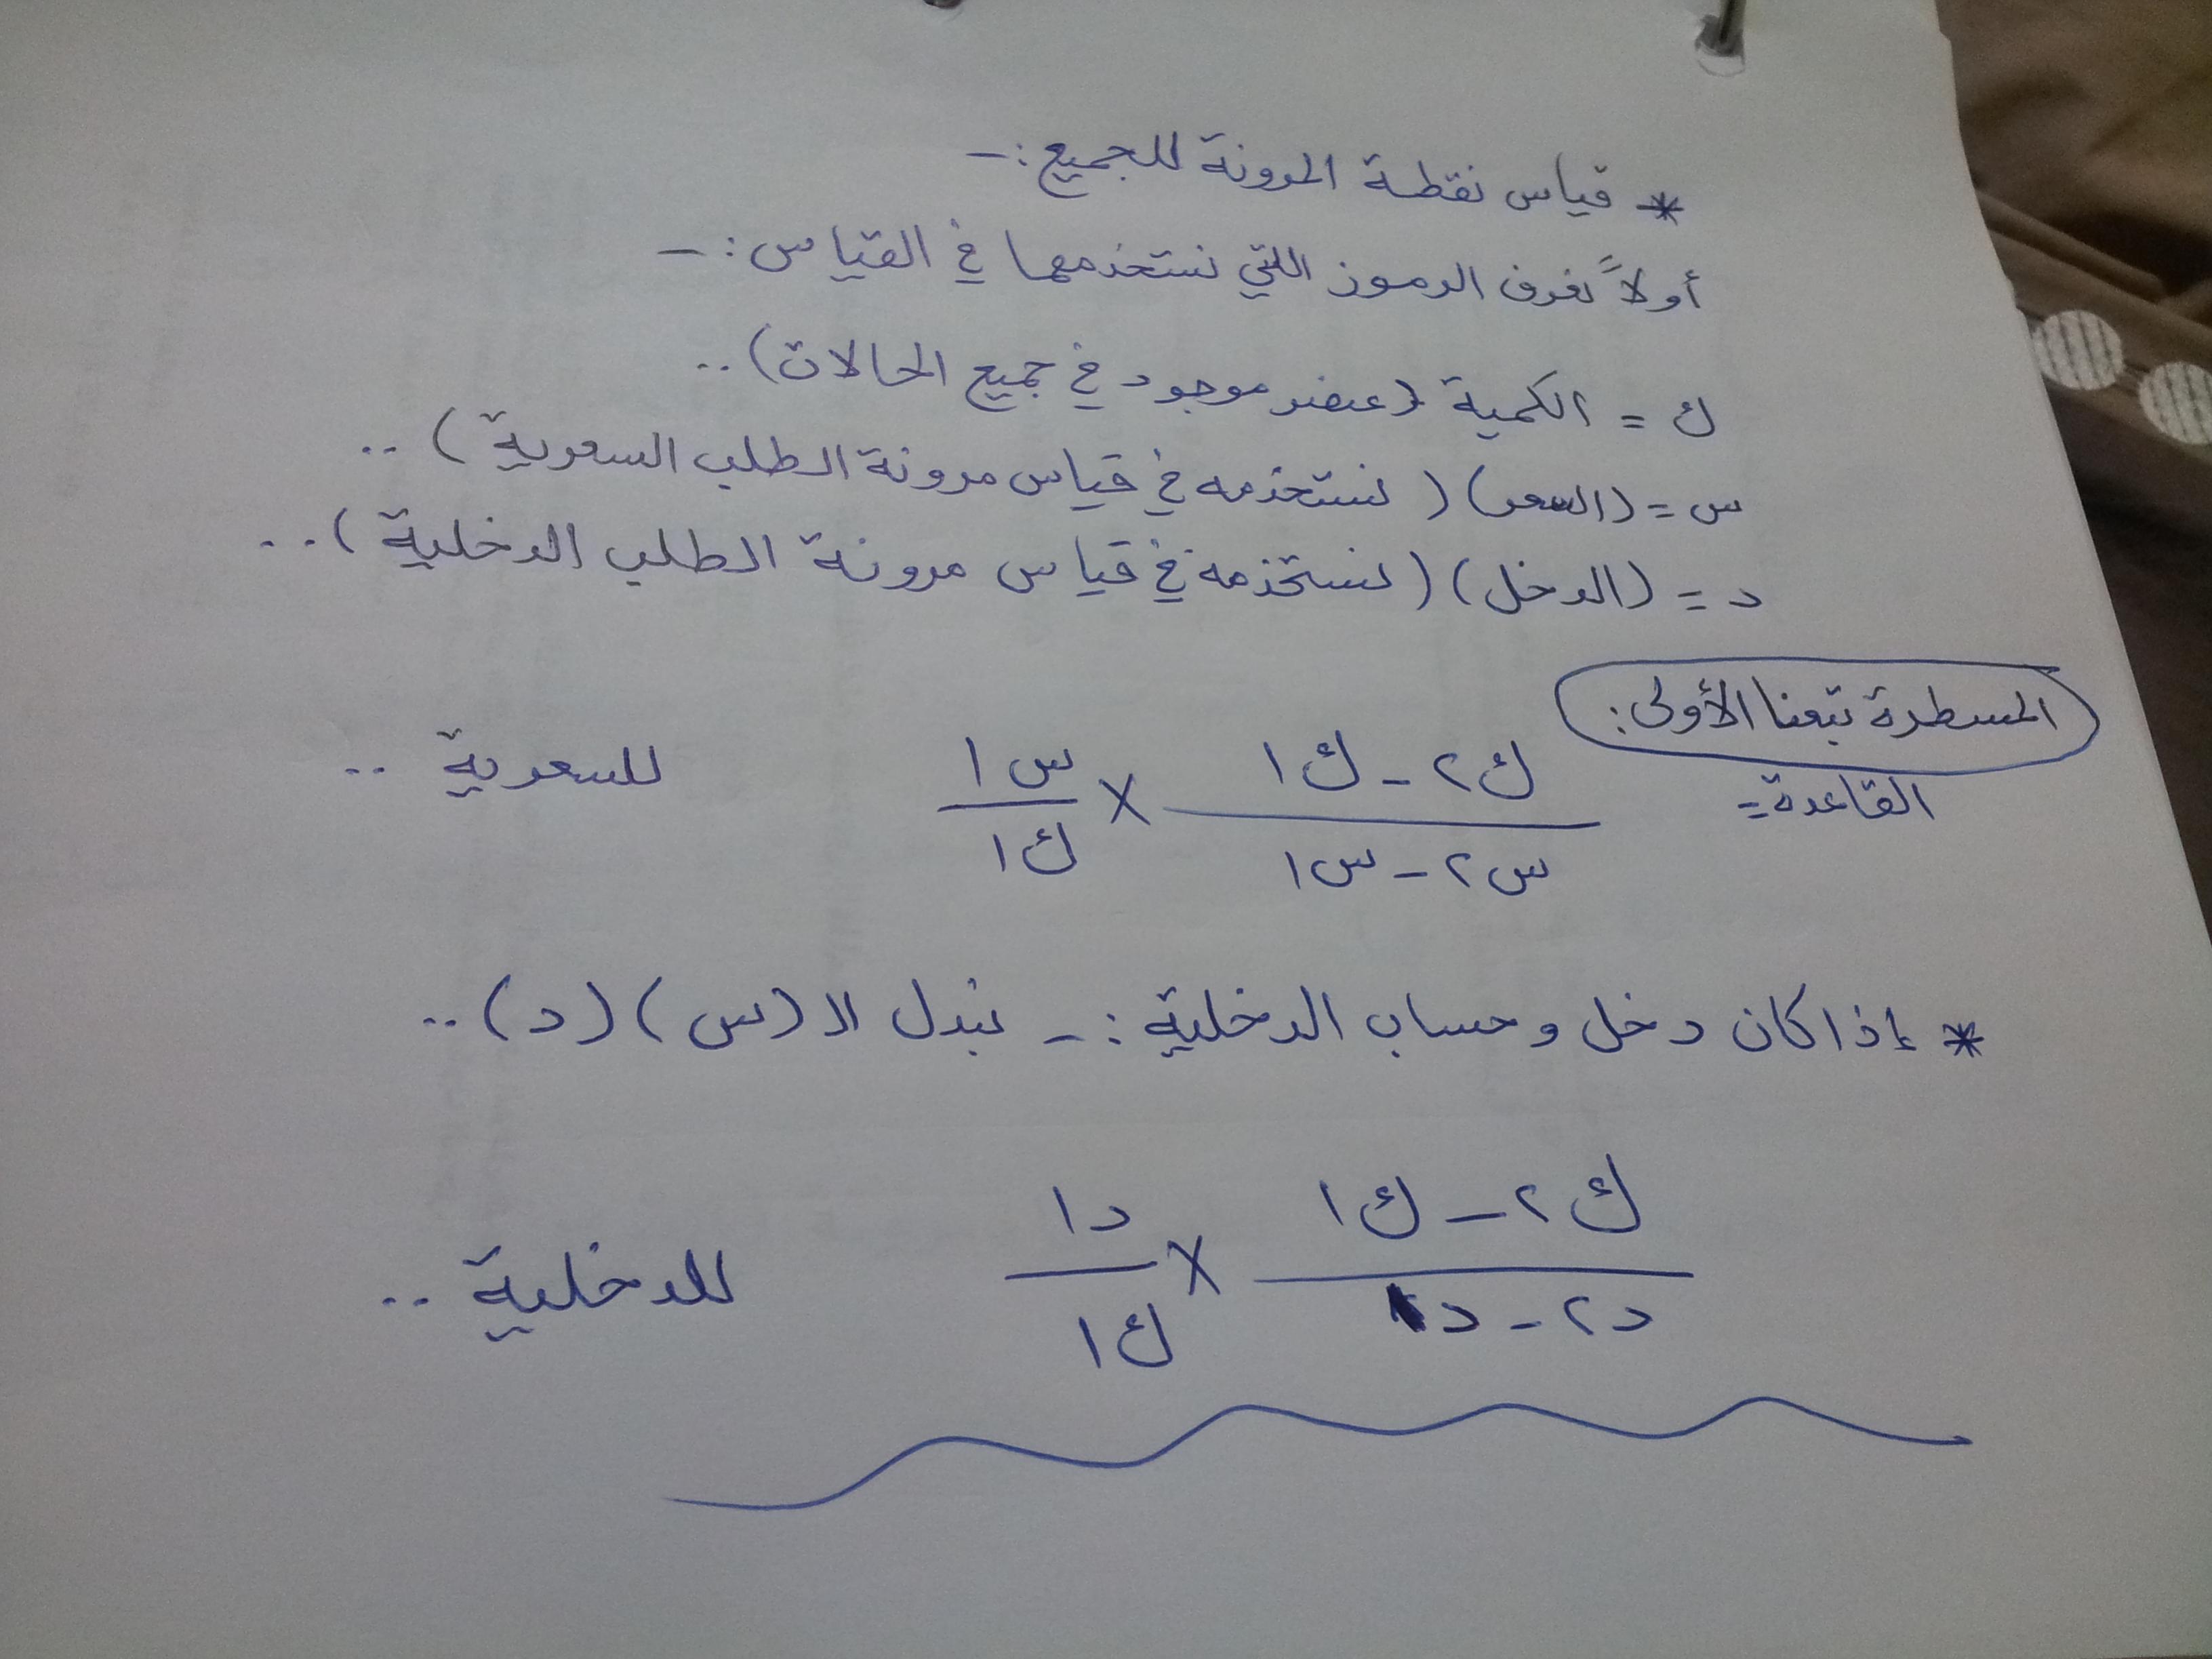 * قياس نقطة المرونة للجميع :-
أولاً نعرف الرموز اللتي نستخدمها في القياس :-
ك = الكمية (عنصر موجود في جميع الحالات) ..
س = (السعر) ( نستخدمه في قياس مرونة الطلب السعرية ) ..
د = (الدخل) ( نستخدمه في قياس مرونة الطلب الدخلية ) ..
المسطرة تبعنا الأولى :
القاعدة =
ك٢ - ك١ / س٢ - س١ × س١ / ك١ للسعرية ..
* إذا كان دخل وحساب الدخلية :- نبدل الـ (س) (د) ..
ك٢ - ك١ / د٢ - د١ × د١ / ك١ للدخلية ..